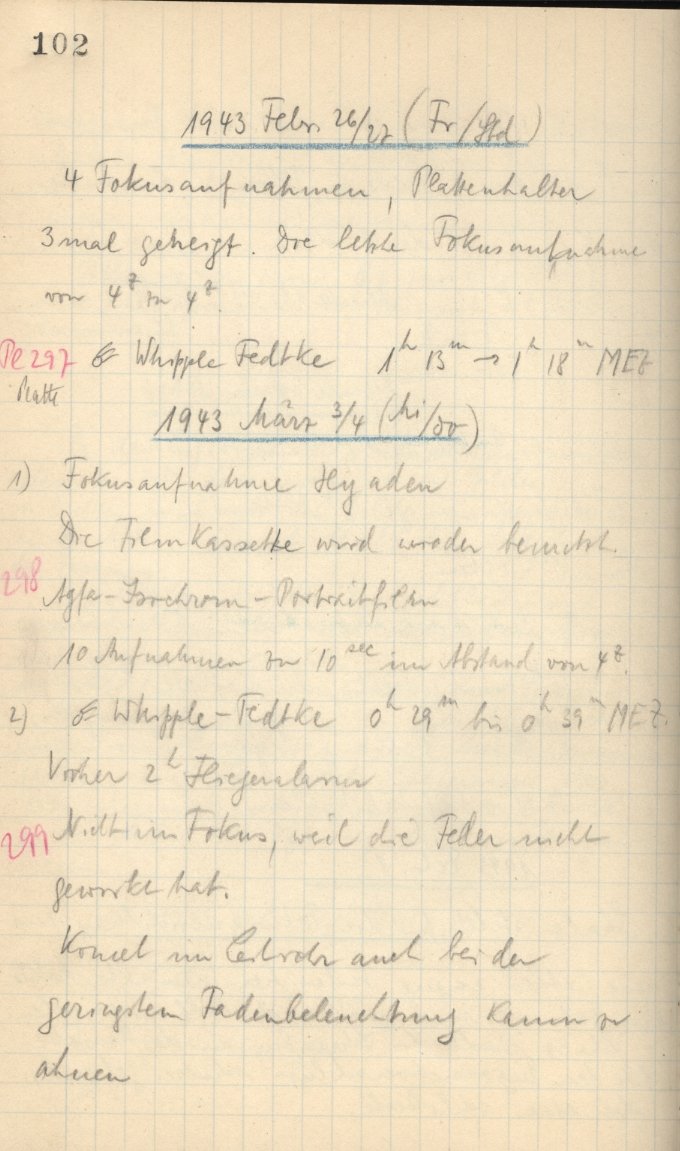 102
1943 Febr. 26/27 (Fr/Sbd)
4 Fokusaufnahmen, Plattenhalter
3 mal geneigt. Die letzte Fokusaufnahme
von 4ᶻ zu 4ᶻ.
Pl 297 ☄ Whipple Fedtke 1ʰ 13ᵐ → 1ʰ 18ᵐ MEZ
Platte
1943 März 3/4 (Mi/Do)
1) Fokusaufnahme Hyaden
Die Filmkassette wird wieder benutzt.
298
Agfa-Isochrom-Portraitfilm
10 Aufnahmen zu 10ˢᵉᶜ im Abstand von 4ᶻ.
2) ☄ Whipple-Fedtke 0ʰ 29ᵐ bis 0ʰ 39ᵐ MEZ.
Vorher 2ʰ Fliegeralarm
299 Nicht im Fokus, weil die Feder nicht
gewirkt hat.
Komet im Leitrohr auch bei der
geringsten Fadenbeleuchtung kaum zu
ahnen